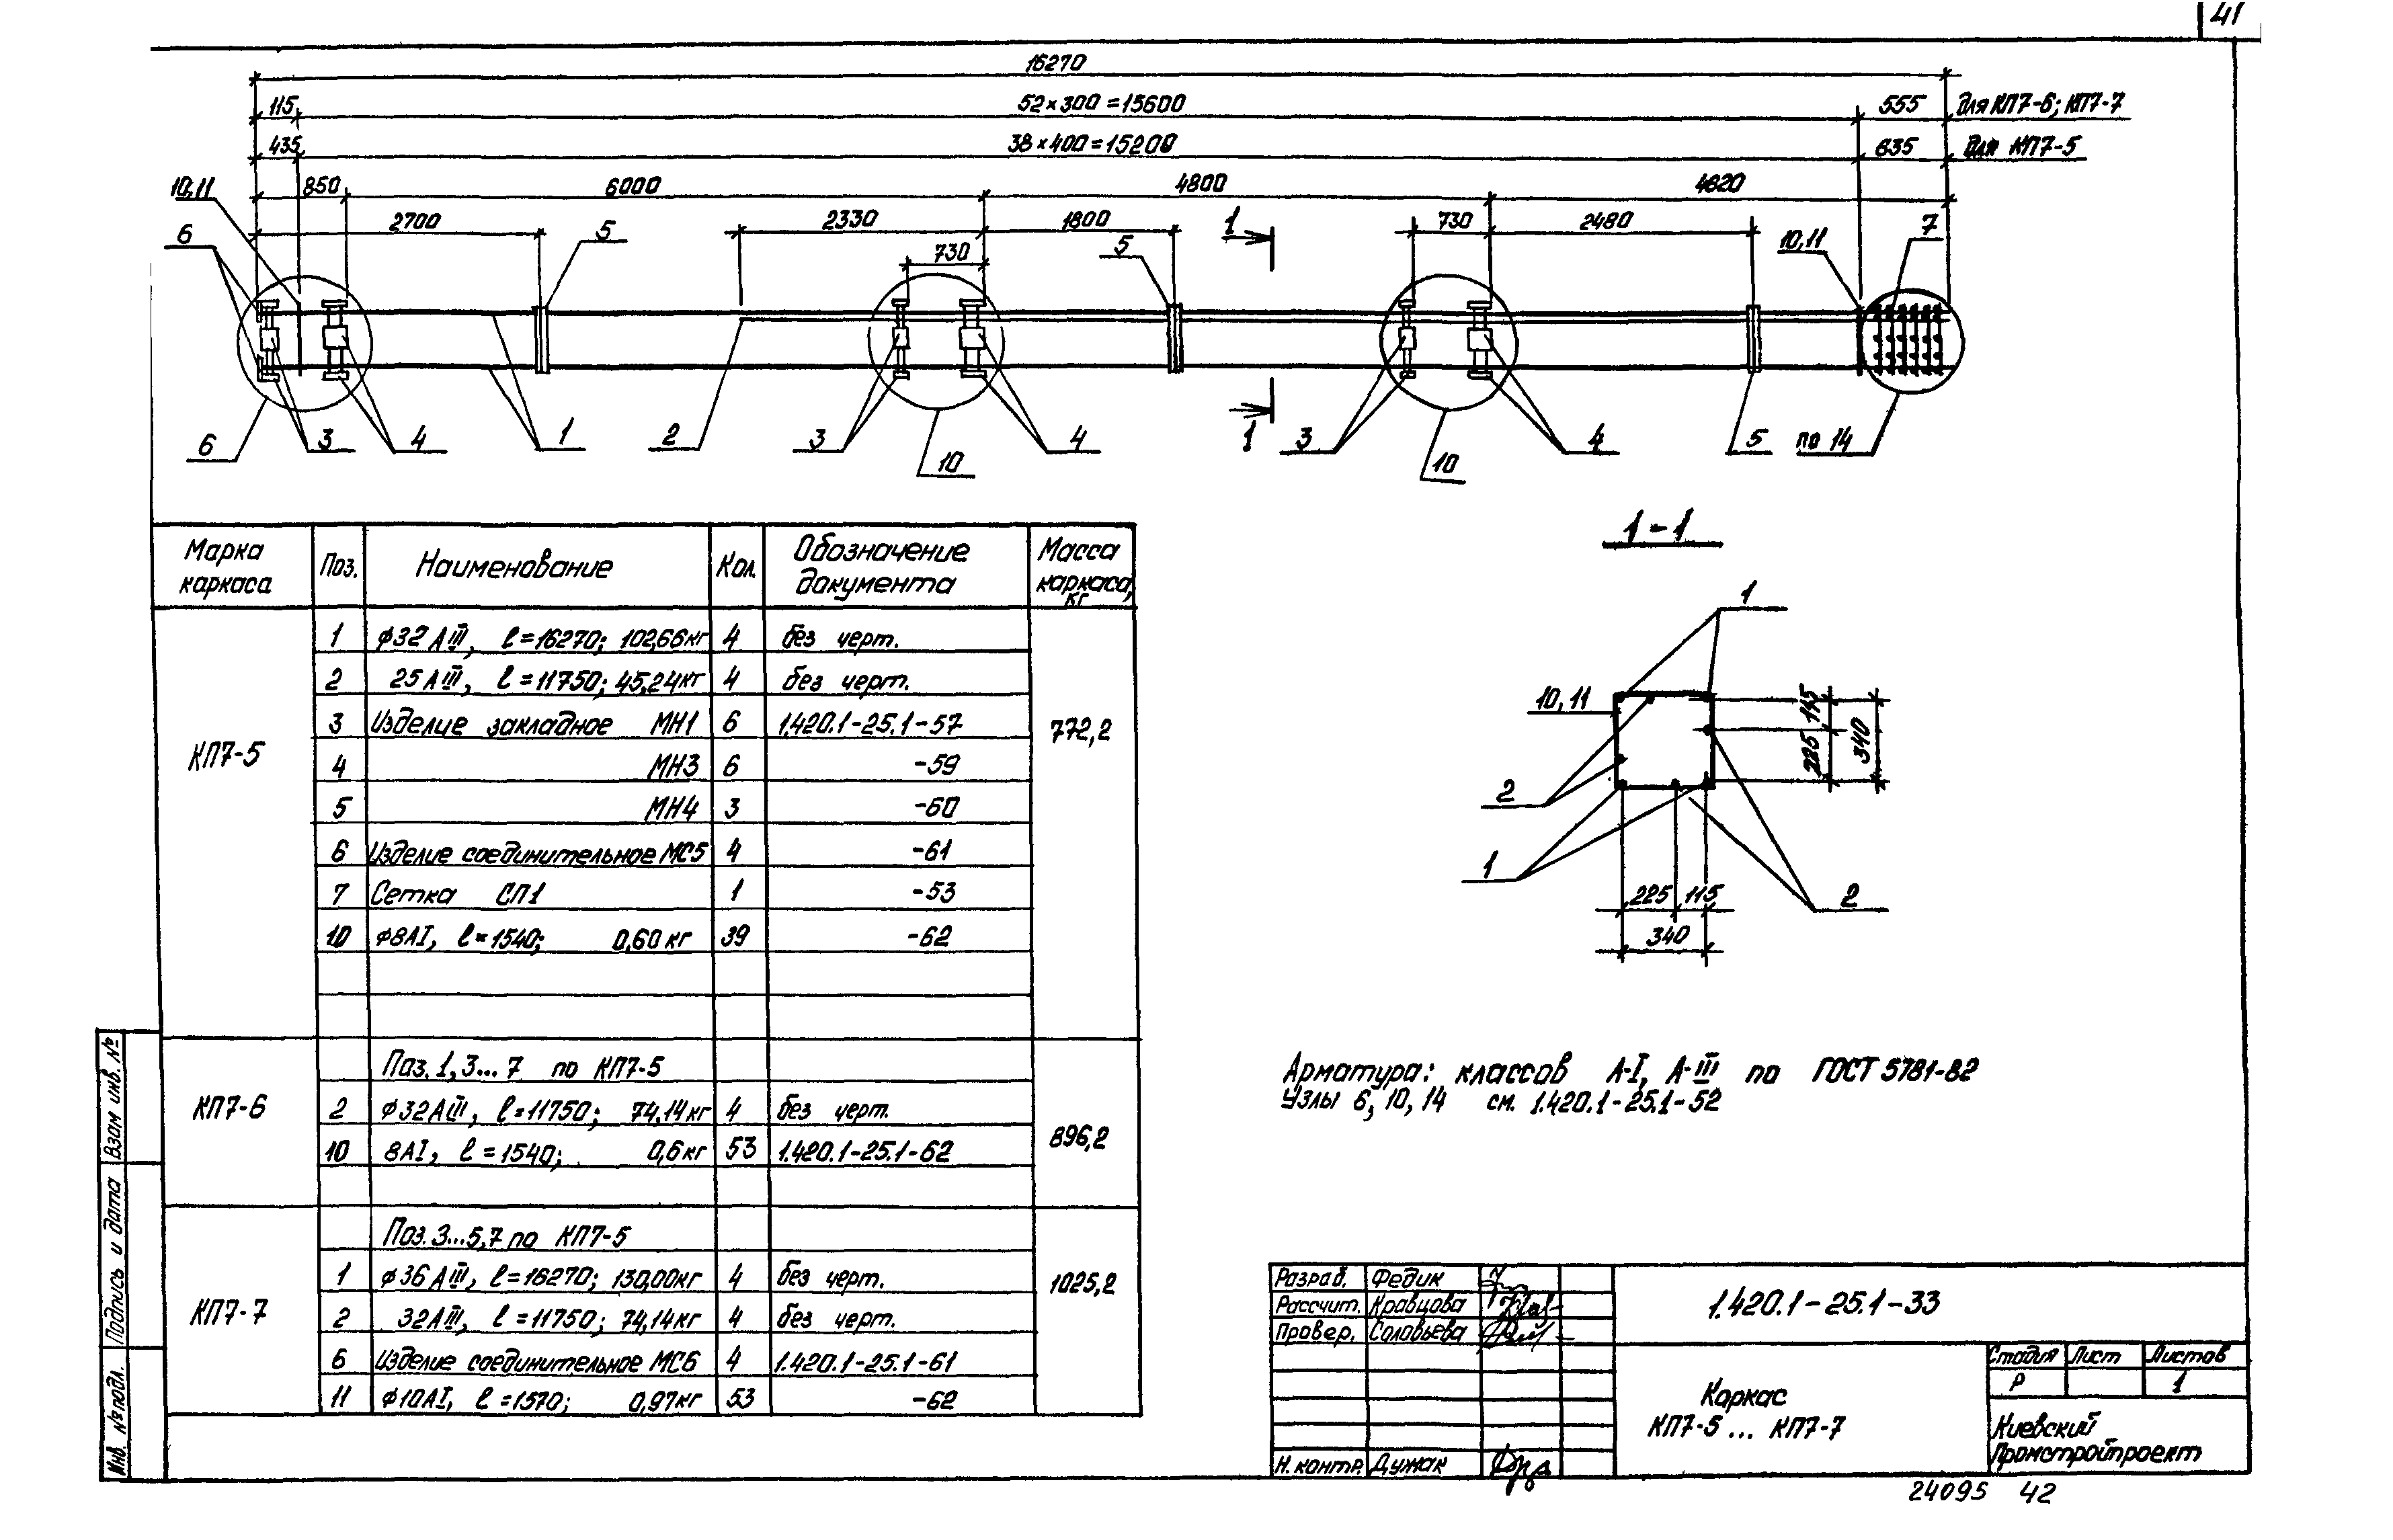 41
16270
115 52×300=15600 555 Для КП7-6; КП7-7
435 38×400=15200 635 Для КП7-5
10,11 850 6000 4800 4620
6 2700 5 2330 1800 1 730 2480 10,11 7
730 5
6 3 4 1 2 3 10 4 1 3 10 4 5 по 14
Марка каркаса Поз. Наименование Кол. Обозначение документа Масса каркаса, кг
КП7-5 772,2
1 ϕ32АIII, ℓ=16270; 102,66кг 4 без черт.
2 25АIII, ℓ=11750; 45,24кг 4 без черт.
3 Изделие закладное МН1 6 1.420.1-25.1-57
4 МН3 6 -59
5 МН4 3 -60
6 Изделие соединительное МС5 4 -61
7 Сетка СП1 1 -53
10 ϕ8АI, ℓ=1540; 0,60кг 39 -62
КП7-6 896,2
Поз. 1, 3... 7 по КП7-5
2 ϕ32АIII, ℓ=11750; 74,14кг 4 без черт.
10 8АI, ℓ=1540; 0,6кг 53 1.420.1-25.1-62
КП7-7 1025,2
Поз. 3...5,7 по КП7-5
1 ϕ36АIII, ℓ=16270; 130,00кг 4 без черт.
2 32АIII, ℓ=11750; 74,14кг 4 без черт.
6 Изделие соединительное МС6 4 1.420.1-25.1-61
11 ϕ10АI, ℓ=1570; 0,97кг 53 -62
1-1
1
10,11 115
225 340
2
1 225 115 2
340
Арматура: классов А-I, А-III по ГОСТ 5781-82
Узлы 6, 10, 14 см. 1.420.1-25.1-52
Разраб. Федик
Рассчит. Кравцова
Провер. Соловьева
Н. контр. Дужак
1.420.1-25.1-33
Каркас
КП7-5 ... КП7-7
Стадия Лист Листов
Р 1
Киевский
Промстройпроект
24095 42
Взам инв. №
Подпись и дата
Инв. № подл.